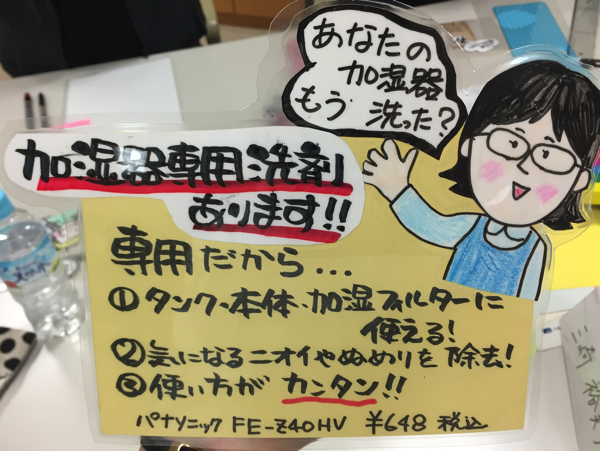 あなたの
加湿器
もう洗った？
加湿器専用洗剤
あります!!
専用だから...
①タンク・本体・加湿フィルターに
使える!
②気になるニオイやぬめりを除去!
③使い方がカンタン!!
パナソニック FE-Z40HV ¥648 税込